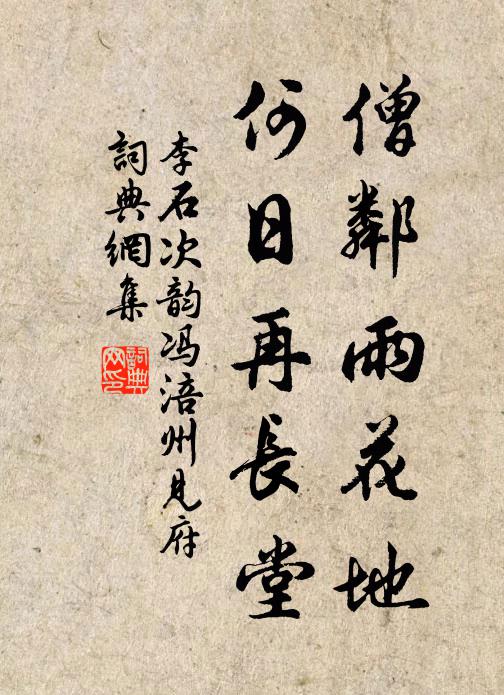 僧鄰雨花地
何日再長堂
李石次韵冯涪州見府
詞典網集
詞典網印